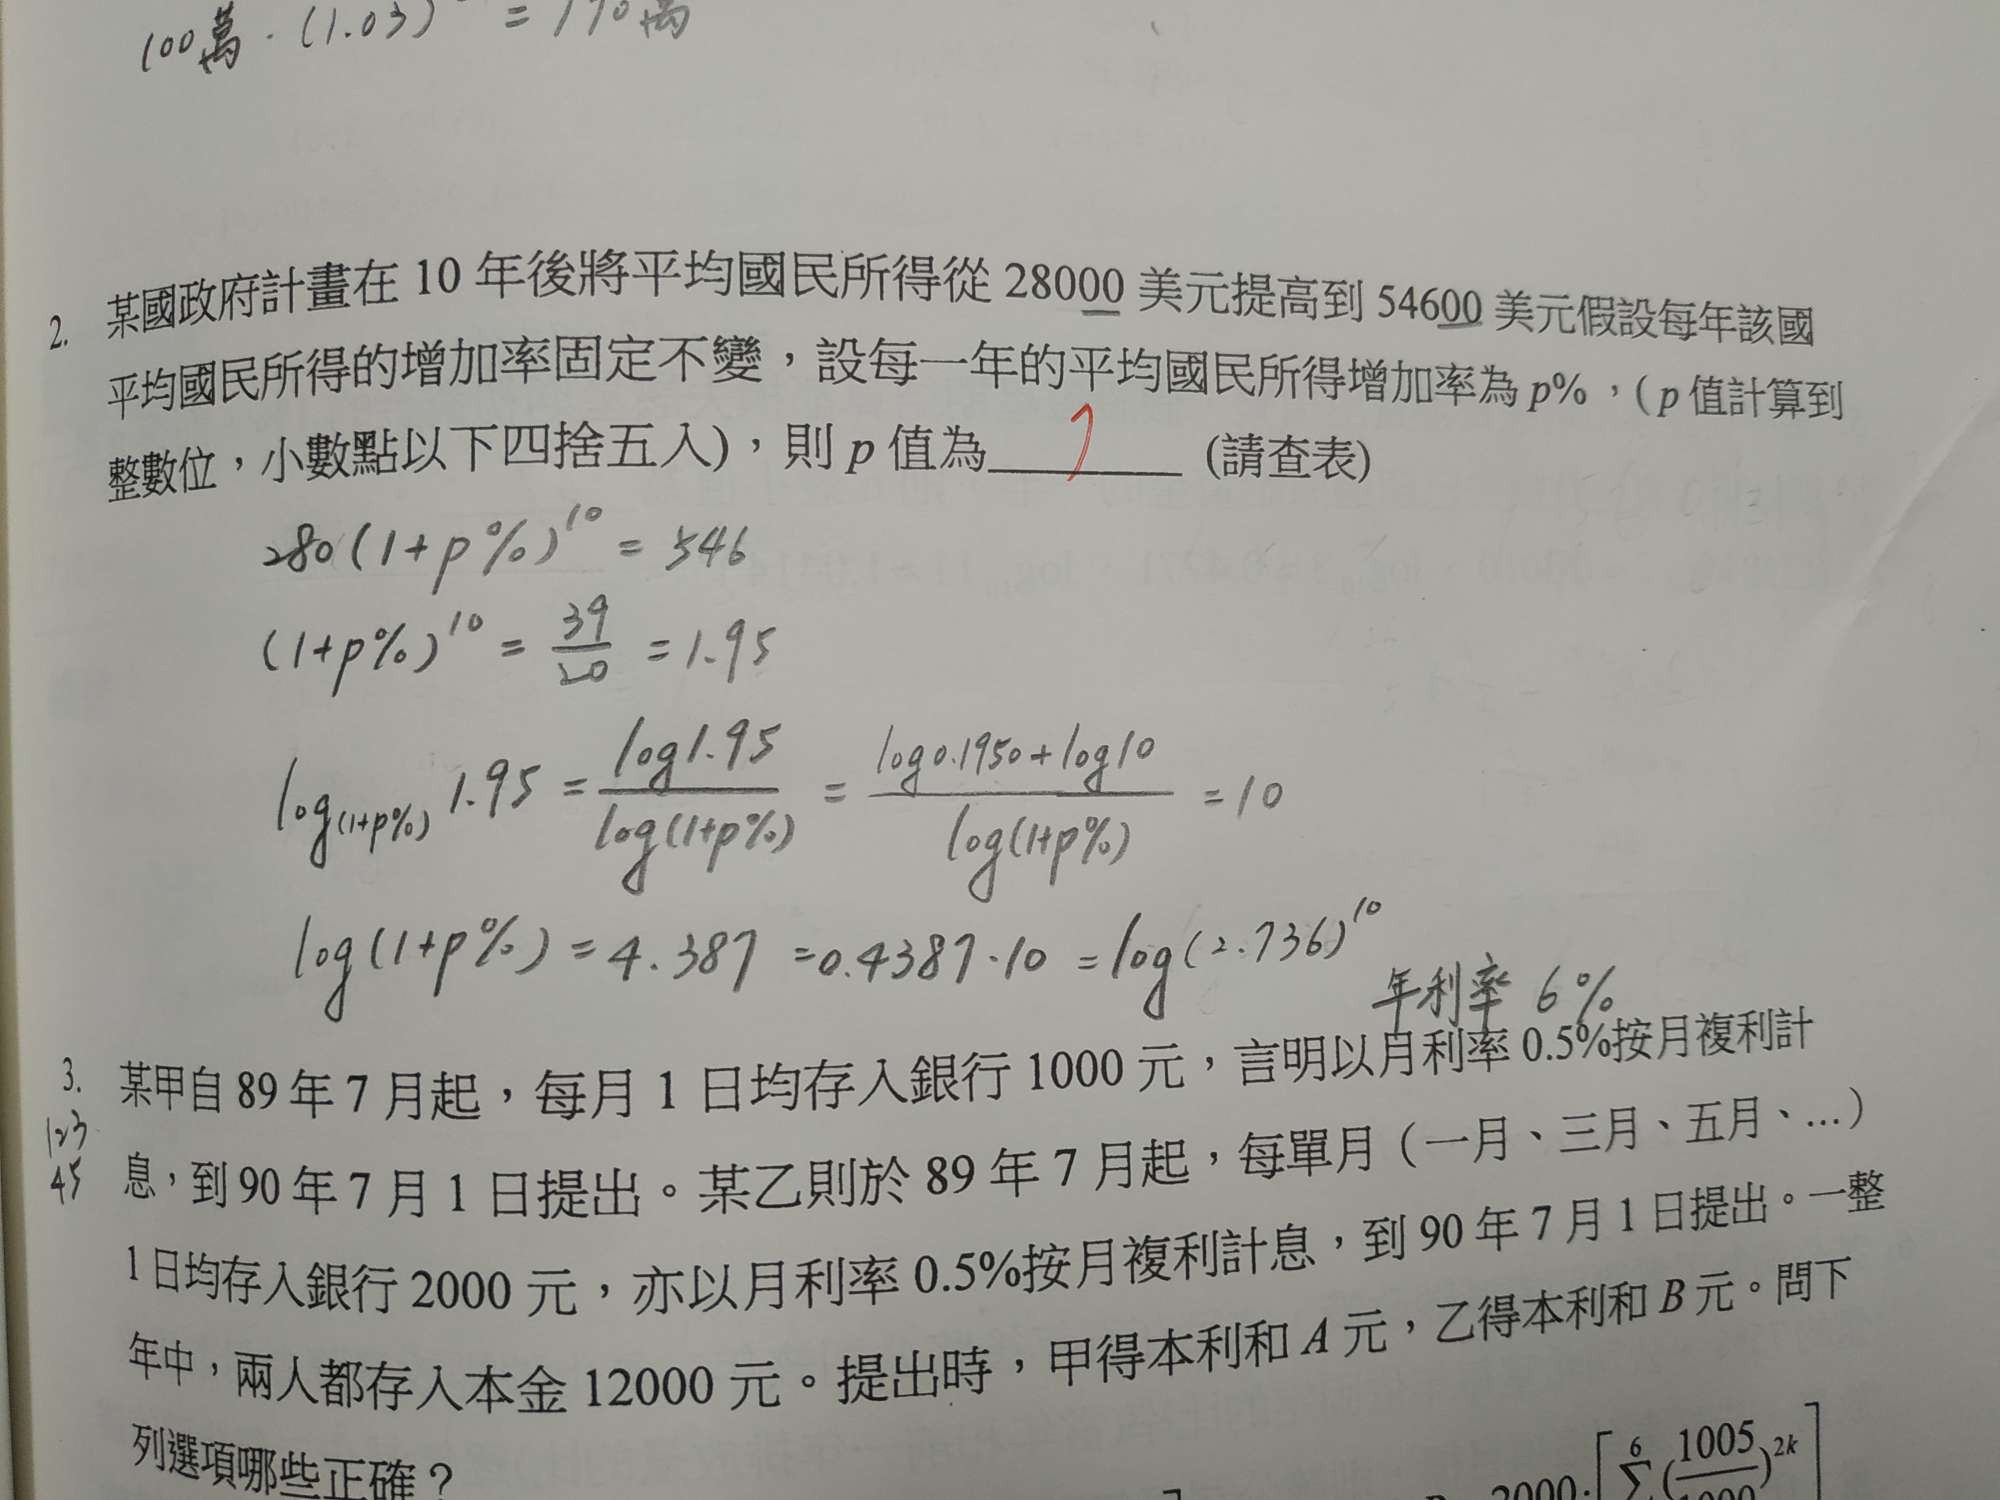 100萬·(1.03) = 190萬
2. 某國政府計畫在 10 年後將平均國民所得從 28000 美元提高到 54600 美元假設每年該國
平均國民所得的增加率固定不變，設每一年的平均國民所得增加率為 p%，( p 值計算到
整數位，小數點以下四捨五入)，則 p 值為 7 (請查表)
280(1+p%)^10 = 546
(1+p%)^10 = 39/20 = 1.95
log_(1+p%) 1.95 = log1.95/log(1+p%) = (log0.1950+log10)/log(1+p%) = 10
log(1+p%) = 4.387 = 0.4387·10 = log(2.736)^10
年利率 6%
3. 某甲自 89 年 7 月起，每月 1 日均存入銀行 1000 元，言明以月利率 0.5%按月複利計
123
45
息，到 90 年 7 月 1 日提出。某乙則於 89 年 7 月起，每單月（一月、三月、五月、…）
1 日均存入銀行 2000 元，亦以月利率 0.5%按月複利計息，到 90 年 7 月 1 日提出。一整
年中，兩人都存入本金 12000 元。提出時，甲得本利和 A 元，乙得本利和 B 元。問下
列選項哪些正確？
2000·[∑ 6 (1005/1000)^2k]